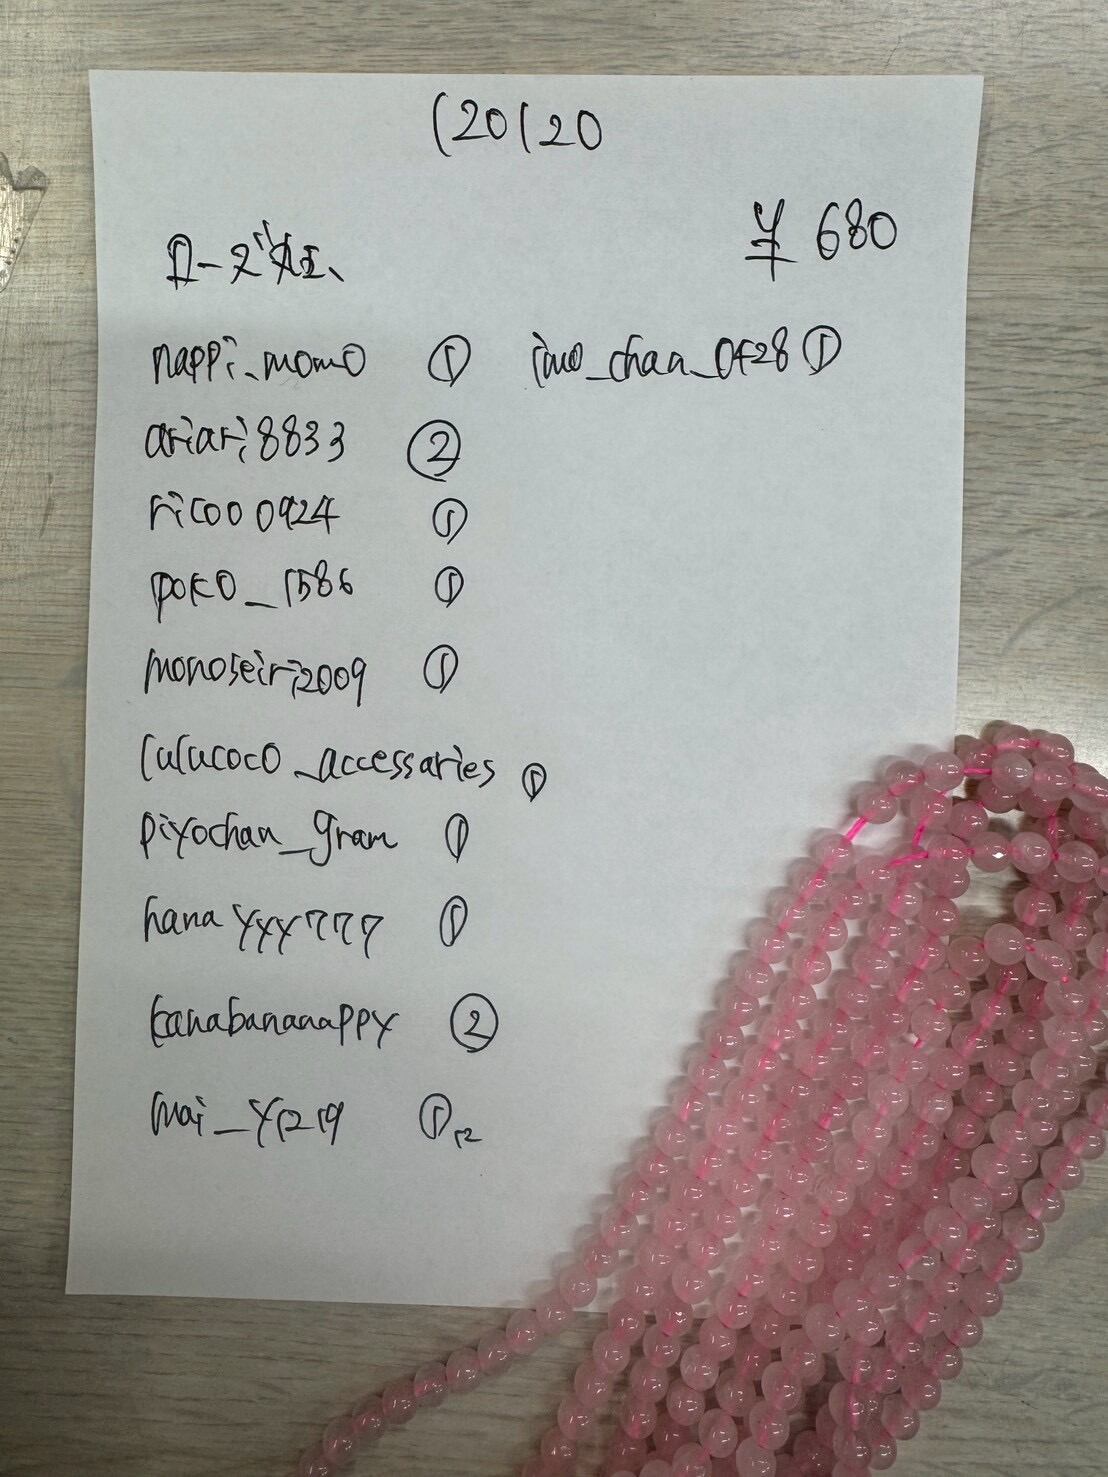 120120
ローズ
¥680
nappi_momo ①
imo_chan_0428 ①
ariari8833 ②
ricoo0924 ①
poko_1586 ①
monoseiri2009 ①
lulucoco_accessaries ①
piyochan_gram ①
hanayyy777 ①
kanabananappy ②
mai_y1219 ① 12